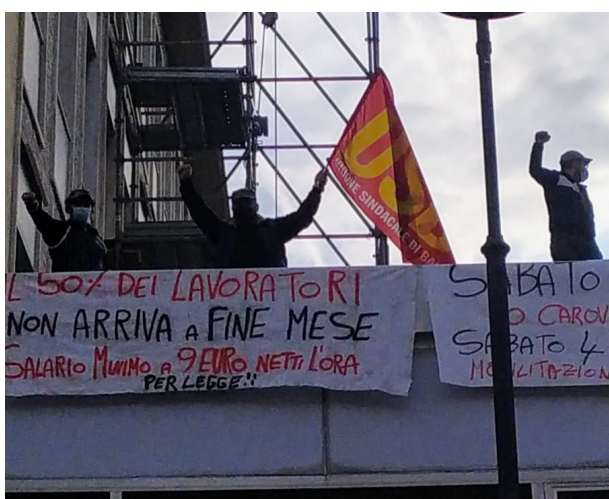 USB
UNIONE SINDACALE DI BA
L 50% DEI LAVORATORI
NON ARRIVA A FINE MESE
SALARIO MINIMO A 9 EURO NETTI L'ORA
PER LEGGE!!
SABATO
CAROV
SABATO 4
MOBILITAZION